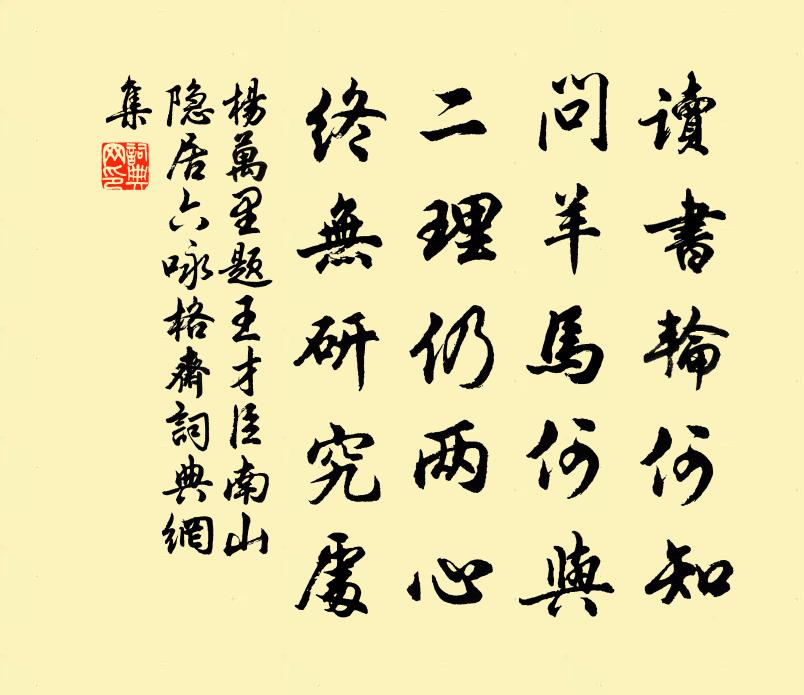 讀書輪何知
問羊馬何與
二理仍兩心
終無研究處
楊萬里題王才臣南山
隐居六咏格齋詞典網
集
詞典網印